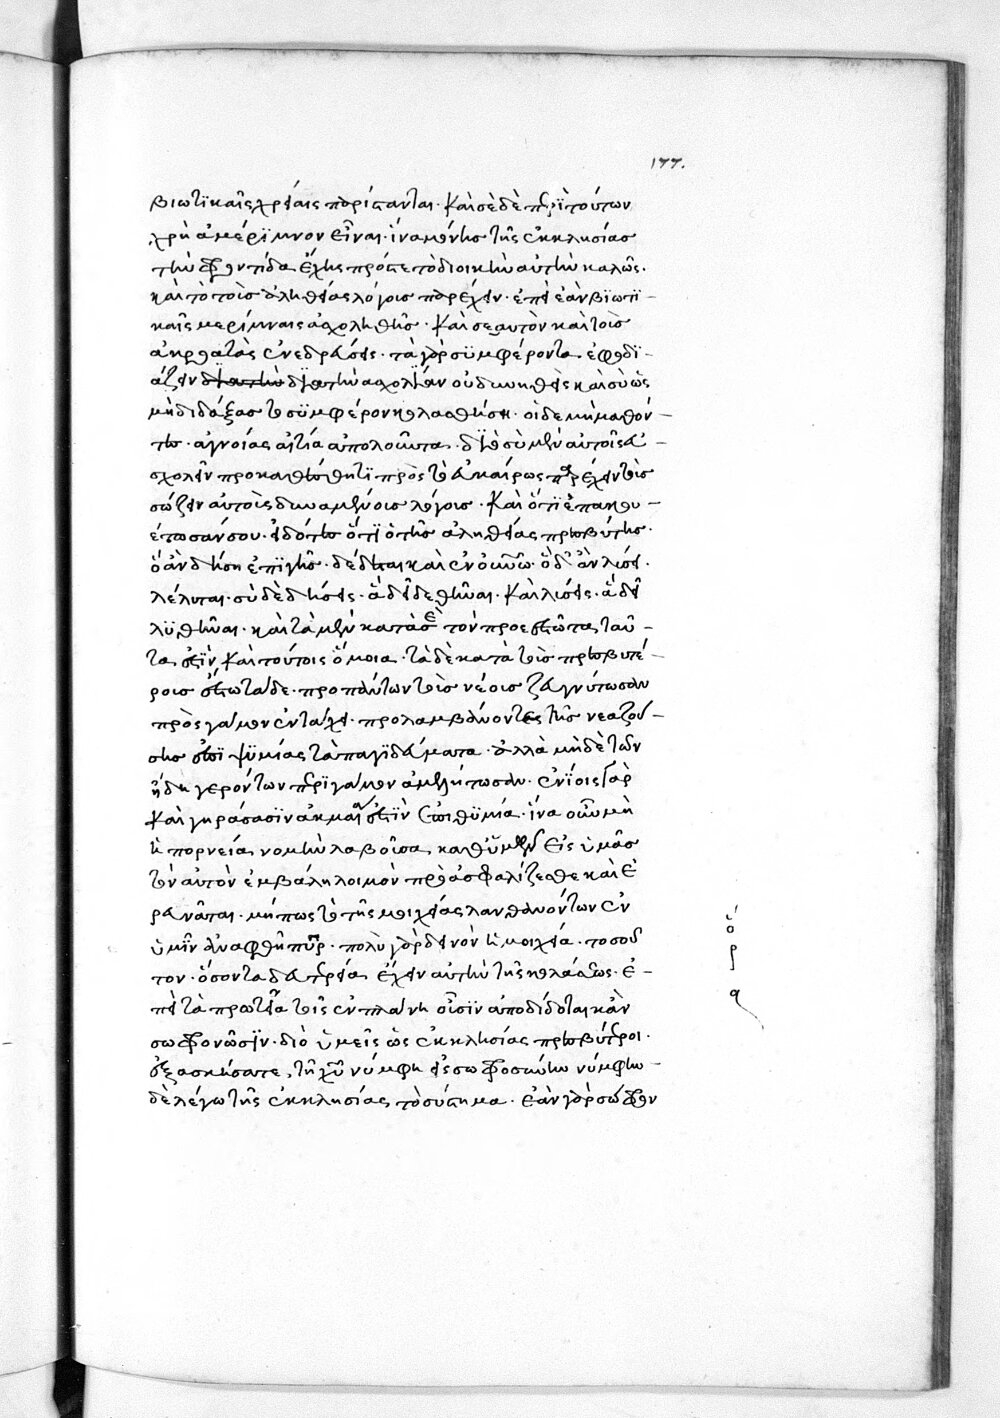 177.
βιωτϊκαῖς χρείαις πορίσανται· καὶ σὲ δὲ περϊ τούτων
χρὴ ἀμέρϊμνον εἶναι· ἵνα μόνης τῆς ἐκκλησίας
τὴν φροντίδα ἔχης πρός τε τὸ διοικεῖν αὐτὴν καλῶς·
καὶ τὸ τοῖς ἀληθείας λόγοις παρέχειν· ἐπεὶ ἐὰν βϊωτϊ-
καῖς μερίμναις ἀσχοληθῆς· καὶ σεαυτὸν καὶ τοὺς
ἀκροατὰς ἐνεδρεύσεις· τὰ γὰρ συμφέροντα ἐφοδϊ-
άζειν διὰ τὴν δϊὰ τὴν ἀσχολΐαν οὐ δυνηθεὶς καὶ σὺ ὡς
μὴ διδάξας τὸ συμφέρον κολασθήση· οἱ δὲ μὴ μαθόν-
τες· ἀγνοίας αἰτία ἀπολοῦνται. δϊὸ σὺ μὲν αὐτοῖς ἀ-
σχολεῖν προκαθέσθητϊ πρὸς τὸ εὐκαίρως παρέχειν τοὺς
σώζειν αὐτοὺς δυναμένους λόγους· καὶ ὅτϊ ἐπακου-
έτωσάν σου· εἰδότες ὅτϊ ὁ τῆς ἀληθείας πρεσβύτης·
ὃ ἂν δήση ἐπϊ γῆς· δέδεται καὶ ἐν οὐνῶ· ὃ δ' ἂν λύσει·
λέλυται· σὺ δὲ δήσεις· ἃ δεῖ δεθῆναι· καὶ λύσεις· ἃ δεῖ
λυθῆναι· καὶ τὰ μὲν κατὰ σὲ τὸν προεστῶτα, ταῦ-
τα ἐστϊν, καὶ τούτοις ὅμοια· τὰ δὲ κατὰ τοὺς πρεσβυτέ-
ρους ἔστω τάδε· πρὸ πάντων τοὺς νέους ζευγνύτωσαν
πρὸς γάμον ἐν τάχει· προλαμβάνοντες τῆς νεαζού-
σης ἐπϊθυμίας τὰ παγϊδεύματα· ἀλλὰ μὴ δὲ τῶν
ἤδη γερόντων περϊ γάμον ἀμελείτωσαν· ἐνΐοις γὰρ
καὶ γηράσασϊν ἀκμαῖα ἐστϊν ἐπιθυμία· ἵνα οὖν μὴ
ἡ πορνεία, νομὴν λαβοῦσα, καθ' ὑμῶν εἰς ὑμᾶς
τὸν αὐτὸν ἐμβάλη λοιμὸν προασφαλίζεσθε καὶ ἐ
ρευνᾶται· μήπως τὸ τῆς μοιχείας λανθανόντων ἐν
ὑμῖν ἀναφθῆ πῦρ· πολὺ γὰρ δεινὸν ἡ μοιχεία· τοσοῦ
τον· ὅσον τὰ δευτερεία, ἔχειν αὐτὴν τῆς κολάσεως· ἐ-
πεὶ τὰ πρωτεῖα τοῖς ἐν πλάνη οὖσϊν ἀποδίδοται κἂν
σωφρονῶσϊν· διὸ ὑμεῖς ὡς ἐκκλησίας πρεσβύτεροι·
ἐξασκήσατε, τὴν χῦ νύμφη εἰς σωφροσύνην νύμφην
δὲ λέγω τῆς ἐκκλησίας τὸ σύστημα· ἐὰν γὰρ σώφρων
ὅρα